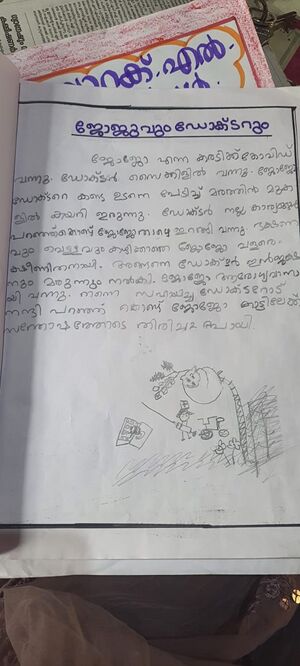 ജോജുവും ഡോക്ടറും
ജോജോ എന്ന കരടിക്ക് കോവിഡ്
വന്നു. ഡോക്ടർ സൈക്കിളിൽ വന്നു. ജോജോ
ഡോക്ടറെ കണ്ട ഉടനെ പേടിച്ച് മരത്തിൻ മുക
ളിൽ കയറി ഇരുന്നു. ഡോക്ടർ നല്ല കാര്യങ്ങൾ
പറഞ്ഞുകൊണ്ട് ജോജോ താഴെ ഇറങ്ങി വന്നു. ഭക്ഷണ
വും വെള്ളവും കഴിക്കാതെ ജോജോ വളരെ
ക്ഷീണിതനായി. അങ്ങനെ ഡോക്ടർ ഇൻജക്ഷ
നും മരുന്നും നൽകി. ജോജോ ആരോഗ്യവാനാ
യി വന്നു. തന്നെ സഹായിച്ച ഡോക്ടറോട്
നന്ദി പറഞ്ഞ് കൊണ്ട് ജോജോ കാട്ടിലേക്ക്
സന്തോഷത്തോടെ തിരിച്ചു പോയി.